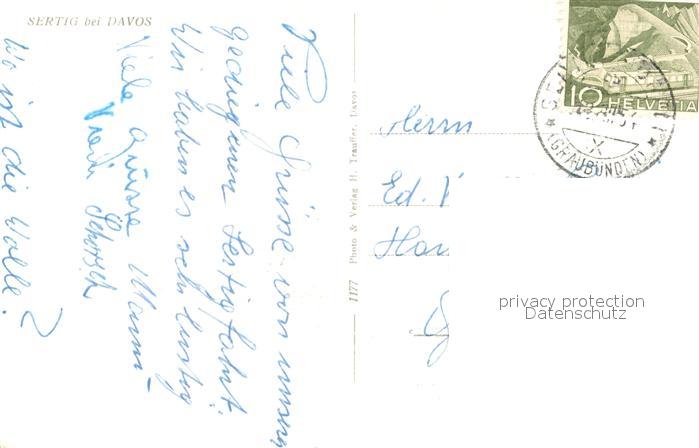 SERTIG bei DAVOS
Viele Grüsse von unserer
gediegenen Sertigfahrt.
Wir haben es sehr lustig
Viele Grüsse Mami
Vreni Schorsch
Wo ist die Wolle?
1177 Photo & Verlag H. Trauffer, Davos
10 HELVETIA
(GRAUBÜNDEN)
Herrn
Ed.
privacy protection
Datenschutz